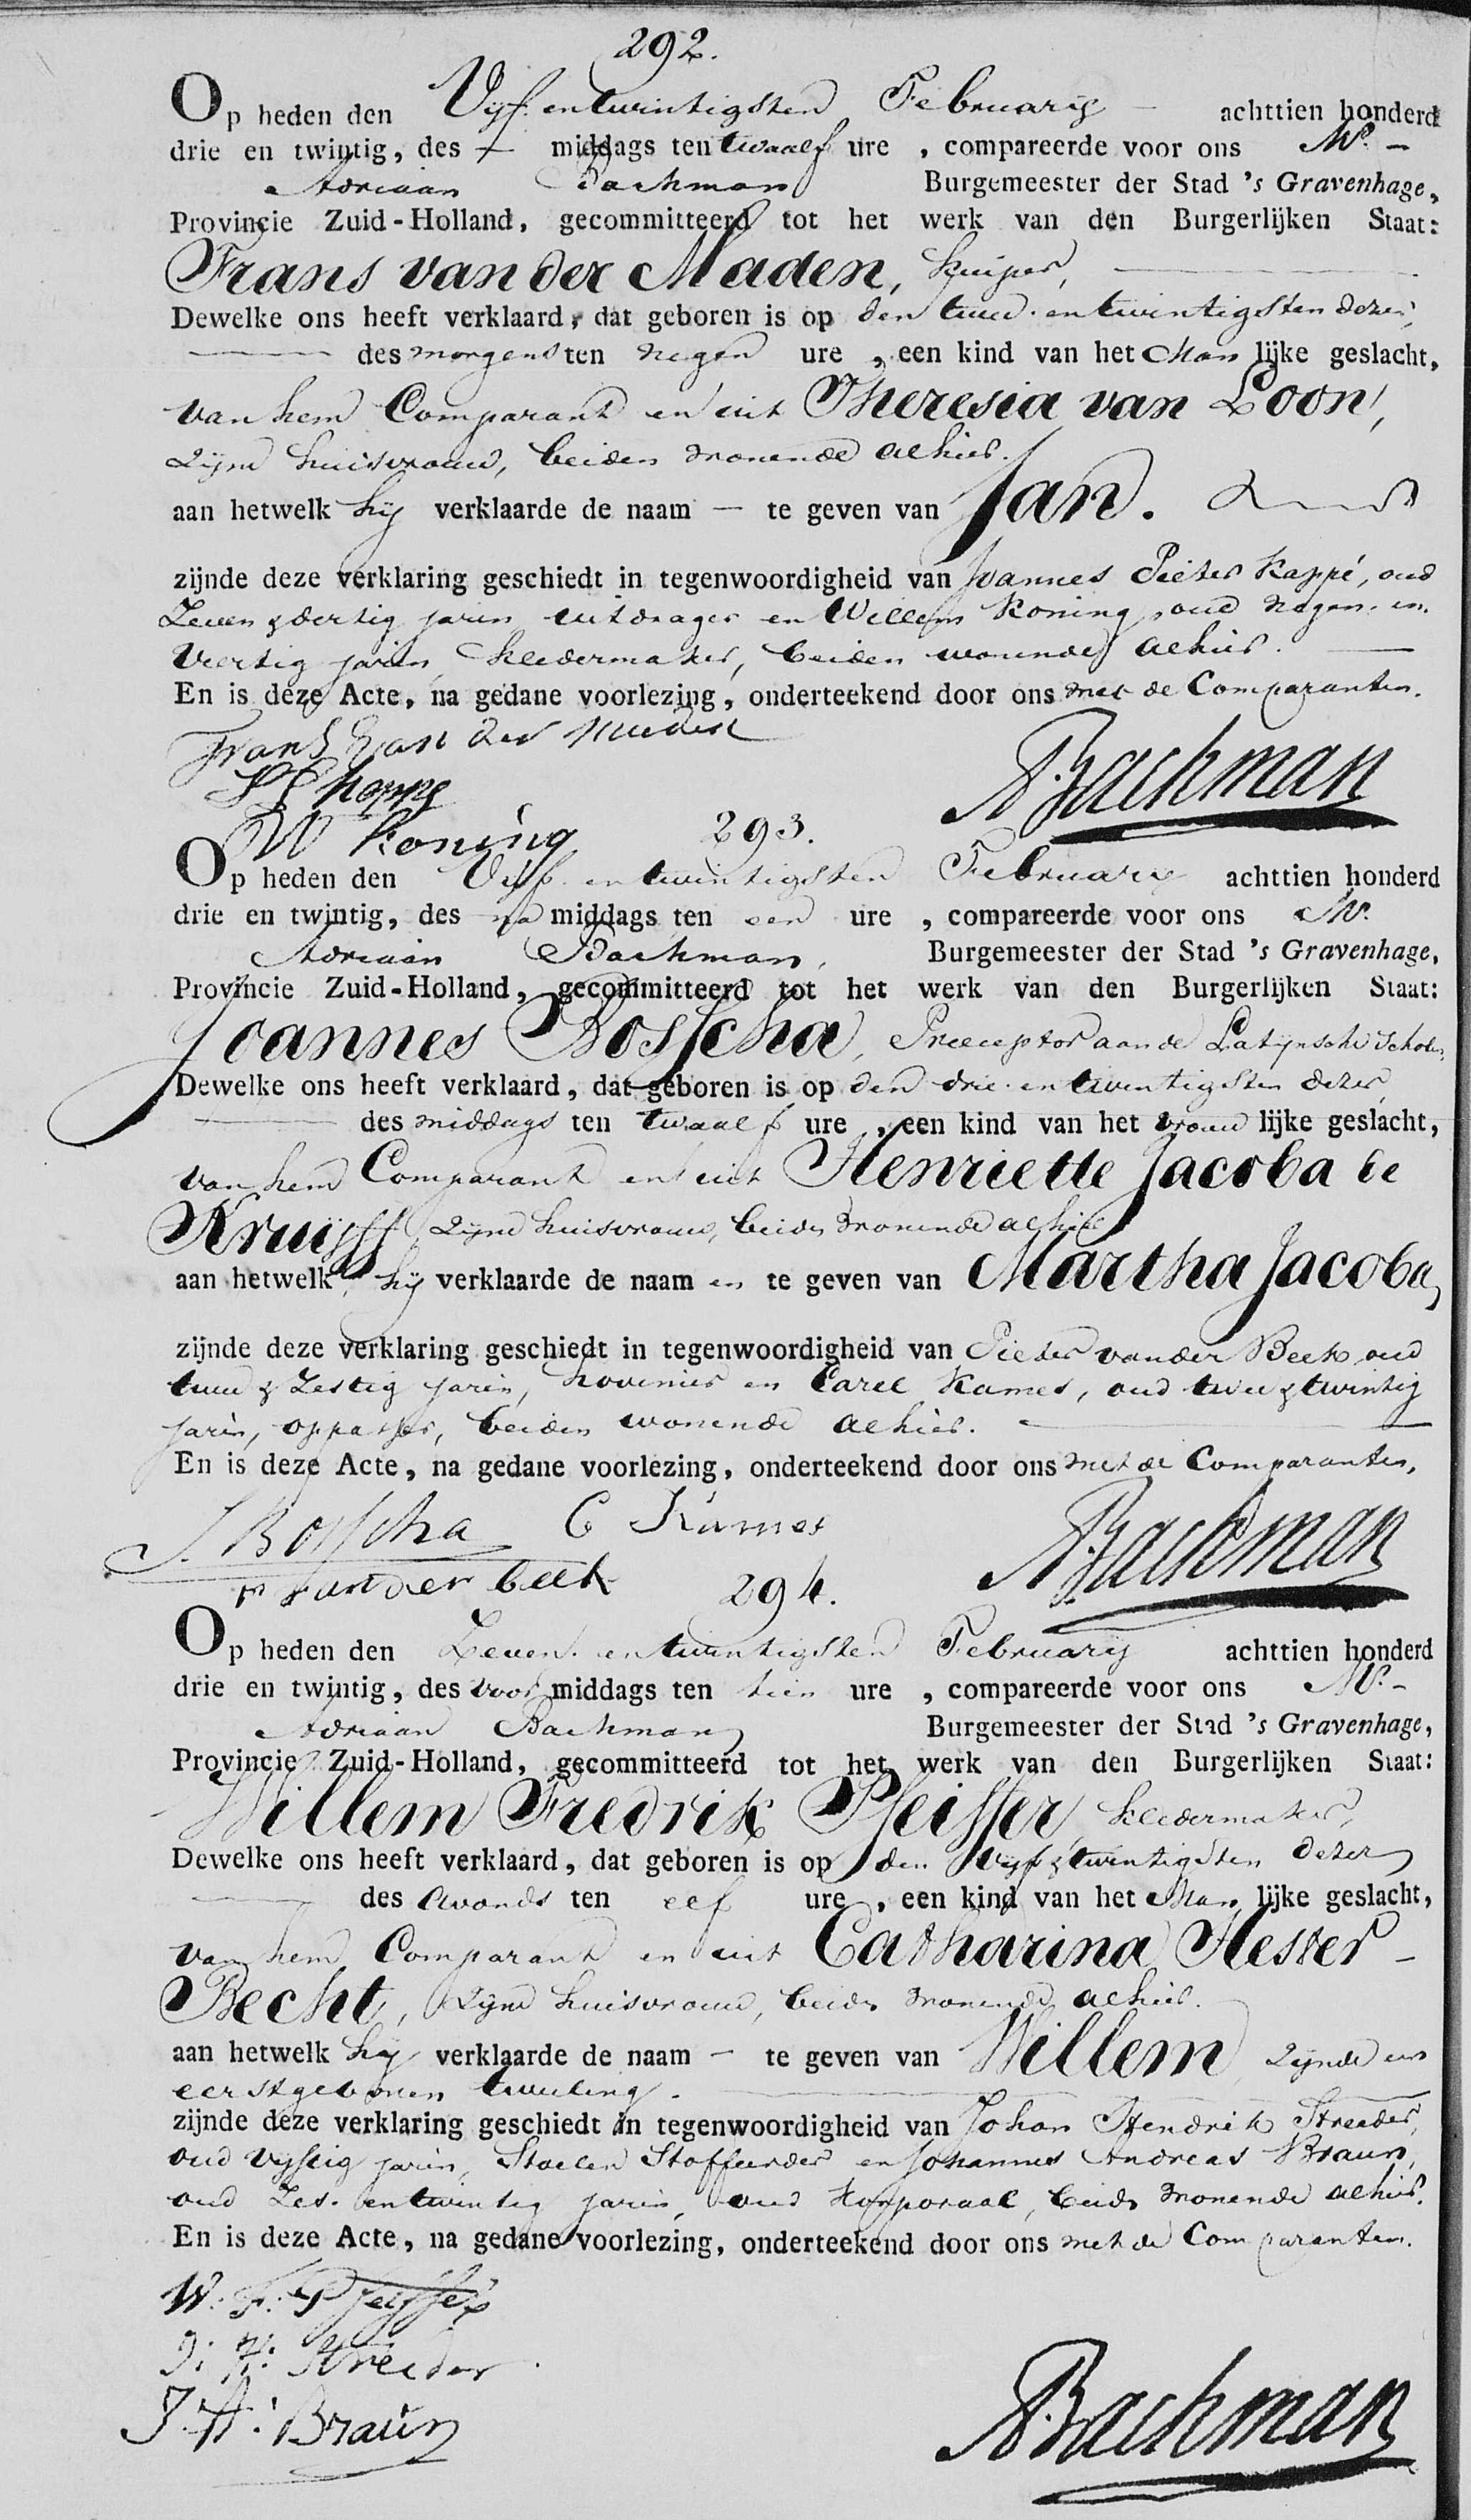 292.
Op heden den Vijf en twintigsten Februarij achttien honderd
drie en twintig, des — middags ten twaalf ure , compareerde voor ons Mr. —
Adriaan Bachman Burgemeester der Stad 's Gravenhage,
Provincie Zuid-Holland, gecommitteerd tot het werk van den Burgerlijken Staat:
Frans van der Maden, Kuiper,
Dewelke ons heeft verklaard, dat geboren is op den twee en twintigsten dezer,
des morgens ten negen ure , een kind van het Man lijke geslacht,
van hem Comparant en uit Theresia van Loon,
zijne huisvrouw, beiden wonende alhier.
aan hetwelk hij verklaarde de naam — te geven van Jan.
zijnde deze verklaring geschiedt in tegenwoordigheid van Joannes Pieter Kappé, oud
Zeven & dertig jaren uitdrager en Willem Koning, oud negen en
Veertig jaren, kleedermaker, beiden wonende alhier.
En is deze Acte, na gedane voorlezing, onderteekend door ons met de Comparanten.
Frans van der Maden
Bachman
W Koning
293.
Op heden den Vijf en twintigsten Februarij achttien honderd
drie en twintig, des na middags ten een ure , compareerde voor ons Mr.
Adriaan Bachman, Burgemeester der Stad 's Gravenhage,
Provincie Zuid-Holland, gecommitteerd tot het werk van den Burgerlijken Staat:
Joannes Bosscha, Preceptor aan de Latijnsche Schole,
Dewelke ons heeft verklaard, dat geboren is op den drie en twintigsten dezer,
des middags ten twaalf ure , een kind van het vrouw lijke geslacht,
van hem Comparant en uit Henriette Jacoba de
Kruijff, zijne huisvrouw, beide wonende alhier
aan hetwelk hij verklaarde de naam en te geven van Martha Jacoba,
zijnde deze verklaring geschiedt in tegenwoordigheid van Pieter van der Beek, oud
twee & Zestig jaren, hovenier en Carel Kames, oud twee & twintig
jaren, oppasser, beiden wonende alhier.
En is deze Acte, na gedane voorlezing, onderteekend door ons met de Comparanten,
J. Bosscha C Kames
Bachman
P van der beek
294.
Op heden den Zeven en twintigsten Februarij achttien honderd
drie en twintig, des voor middags ten tien ure , compareerde voor ons Mr. —
Adriaan Bachman Burgemeester der Stad 's Gravenhage,
Provincie Zuid-Holland, gecommitteerd tot het werk van den Burgerlijken Staat:
Willem Fredrik Pfeiffer kleedermaker,
Dewelke ons heeft verklaard, dat geboren is op den Vijf & twintigsten dezer
des avonds ten elf ure , een kind van het Man lijke geslacht,
van hem Comparant en uit Catharina Hester
Becht, zijne huisvrouw, beide wonende alhier.
aan hetwelk hij verklaarde de naam — te geven van Willem, zijnde een
eerstgeboren tweeling.
zijnde deze verklaring geschiedt in tegenwoordigheid van Johan Hendrik Streeder,
oud vijftig jaren, Stoelen Stoffeerder en Johannes Andreas Braun,
oud Zes en twintig jaren, oud Korporaal, beide wonende alhier.
En is deze Acte, na gedane voorlezing, onderteekend door ons met de Comparanten.
W: F: Pfeiffer
J: H: Streeder
J: A: Braun
Bachman